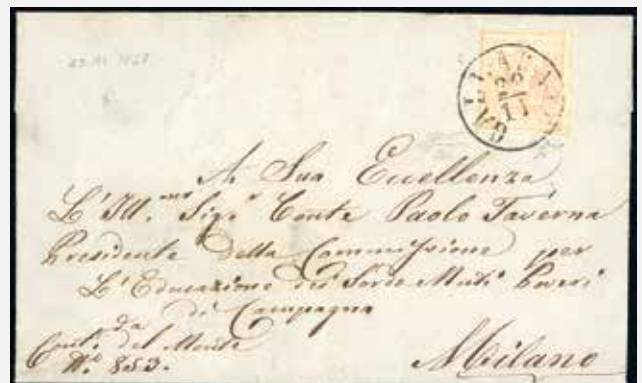 GALLARATE
26
11
A Sua Eccellenza
L'Ill.mo Sigr Conte Paolo Taverna
Presidente della Commissione per
L'Educazione dei Sordo Muti Poveri
di Campagna
da
Cont. del Monte
N.o 853.
Milano